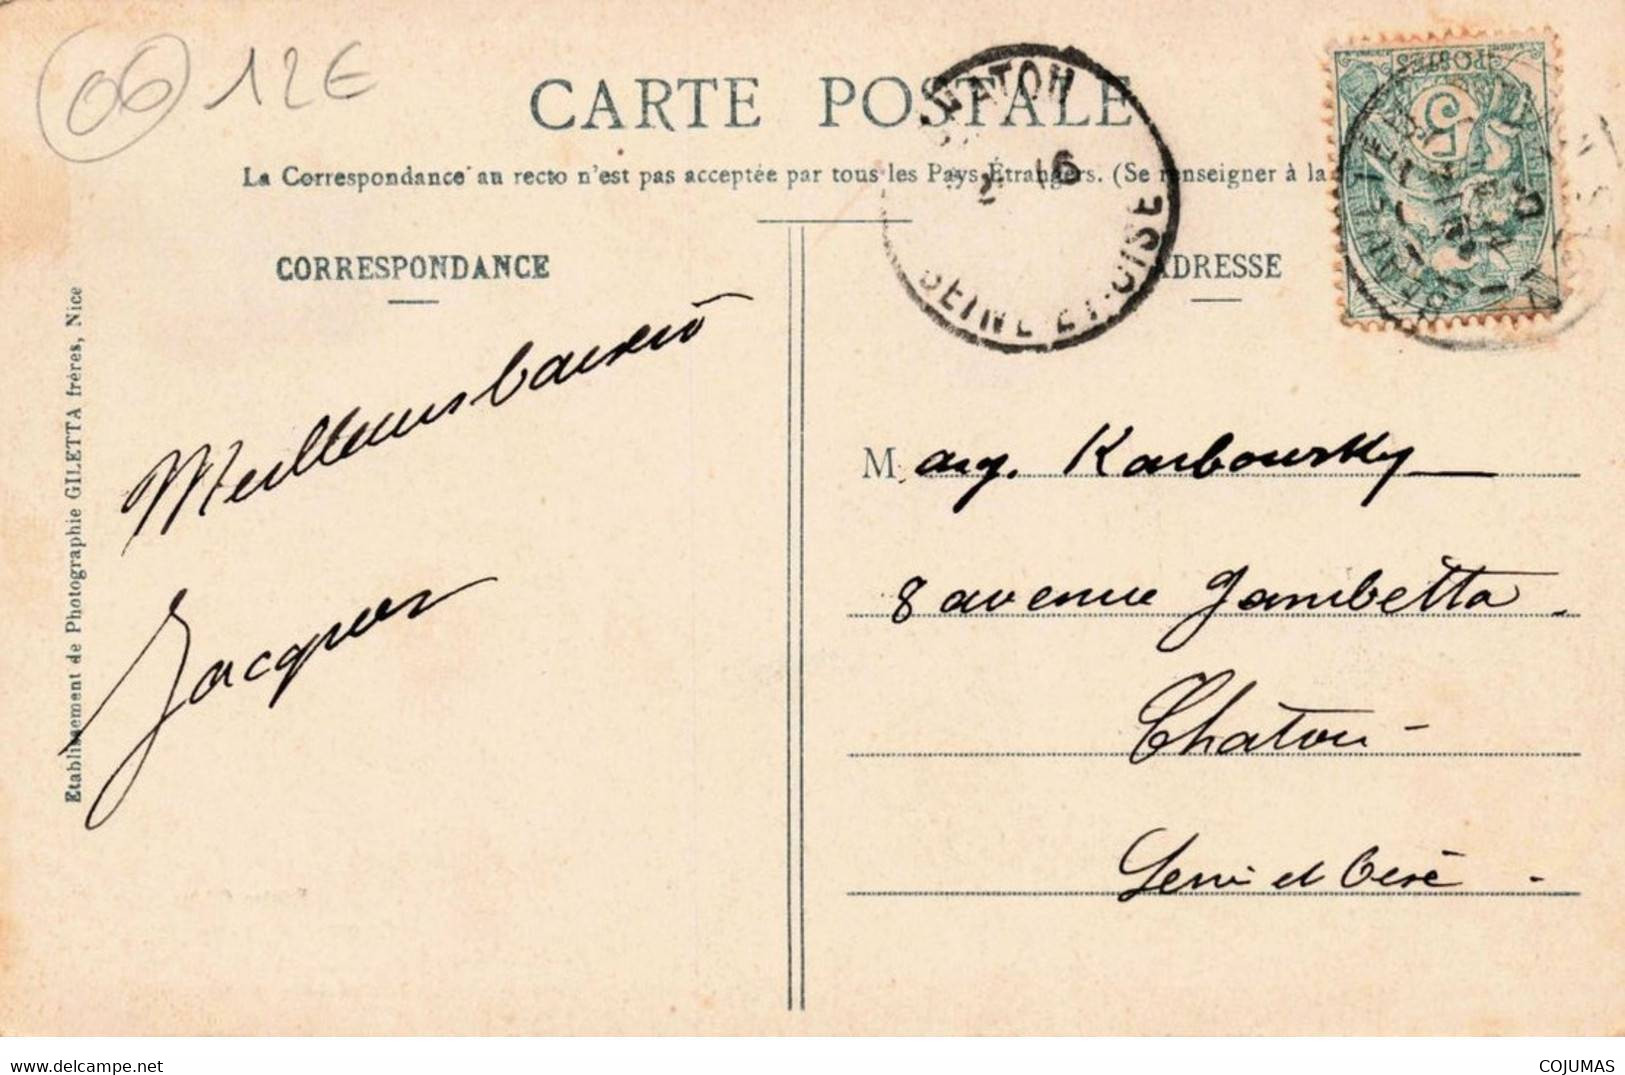 06 12€
CARTE POSTALE
La Correspondance au recto n'est pas acceptée par tous les Pays Étrangers. (Se renseigner à la
CHATOU
2 16
SEINE-ET-OISE
POSTES
5
CORRESPONDANCE
ADRESSE
Meilleurs baisers
Jacques
Marg. Karbowsky
8 avenue Gambetta.
Chatou -
Seine et Oise -
Etablissement de Photographie GILETTA frères, Nice
www.delcampe.net
COJUMAS